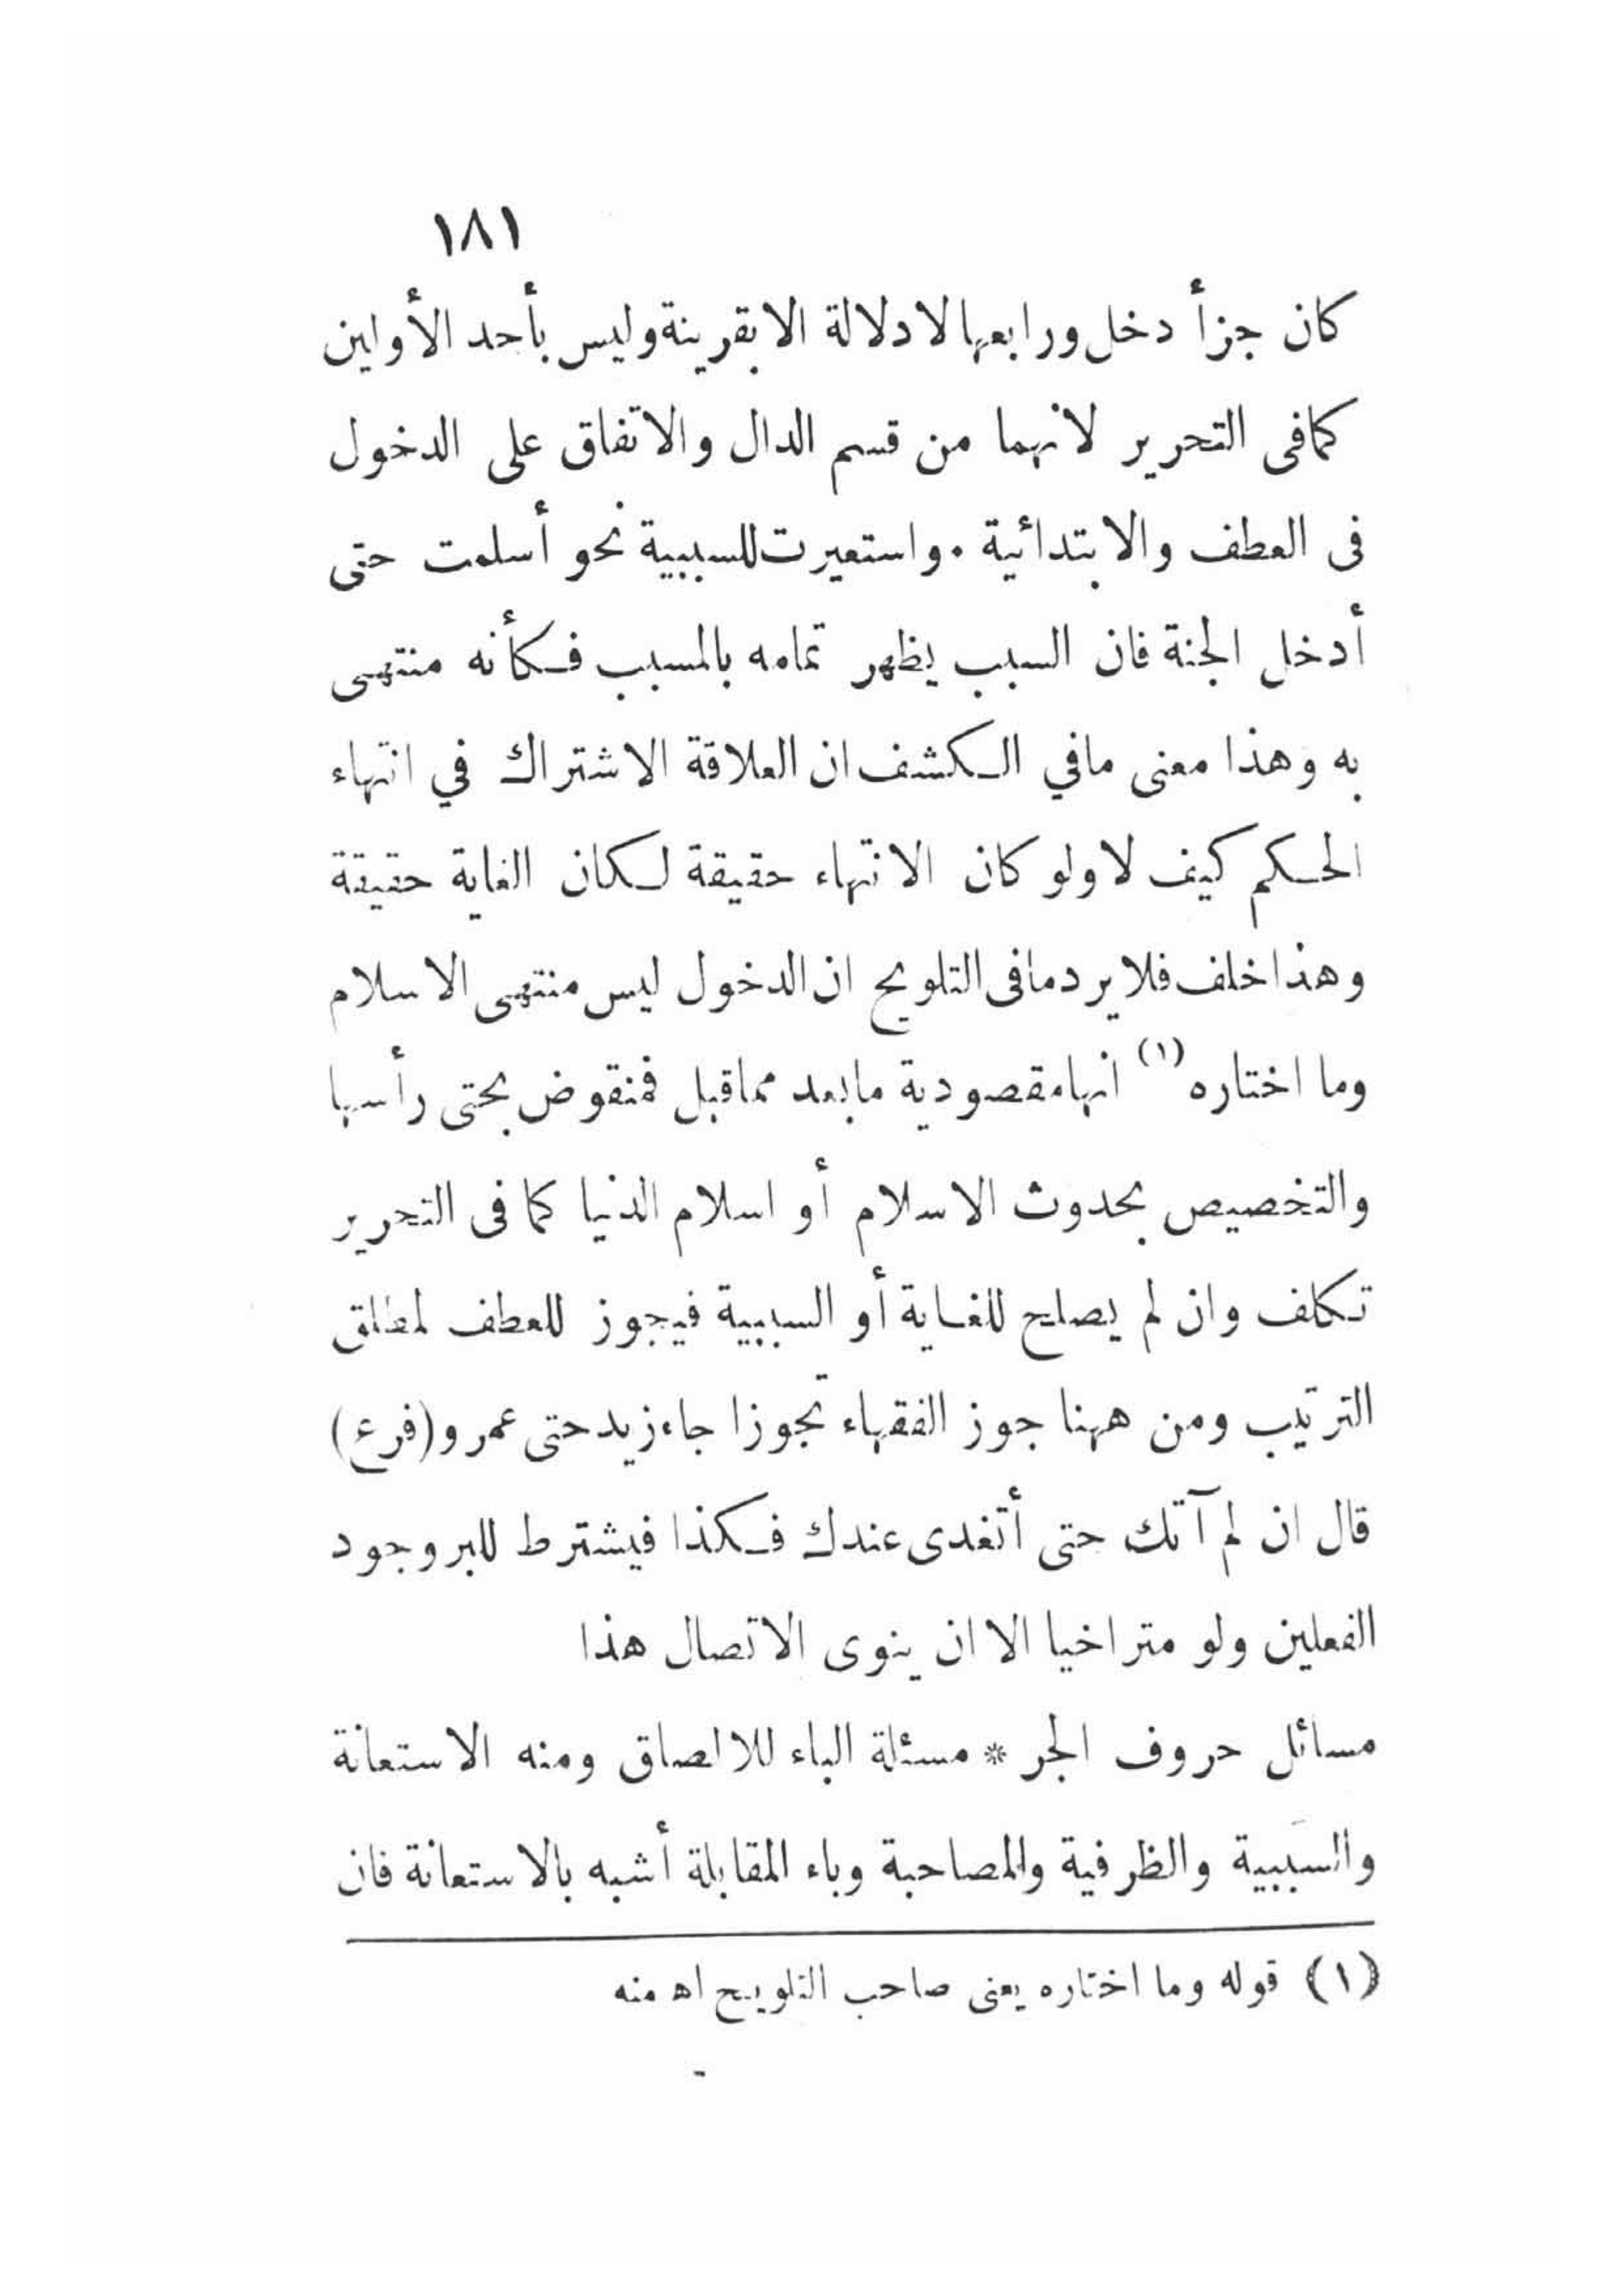 ١٨١
كان جزأ دخل ورابعها لا دلالة الا بقرينة وليس بأحد الأولين
كما فى التحرير لانهما من قسم الدال والاتفاق على الدخول
فى العطف والابتدائية . واستعيرت للسببية نحو أسلمت حتى
أدخل الجنة فان السبب يظهر تمامه بالمسبب فكأنه منتهى
به وهذا معنى مافي الكشف ان العلاقة الاشتراك في انتهاء
الحكم كيف لا ولو كان الانتهاء حقيقة لكان الغاية حقيقة
وهذا خلف فلا يرد مافى التلويح ان الدخول ليس منتهى الاسلام
وما اختاره (١) انها مقصودية ما بعد مما قبل فمنقوض بحتى رأسها
والتخصيص بحدوث الاسلام أو اسلام الدنيا كما فى التحرير
تكلف وان لم يصلح للغاية أو السببية فيجوز للعطف لمطلق
الترتيب ومن ههنا جوز الفقهاء تجوزا جاء زيد حتى عمرو (فرع)
قال ان لم آتك حتى أتغدى عندك فكذا فيشترط للبر وجود
الفعلين ولو متراخيا الا ان ينوى الاتصال هذا
مسائل حروف الجر * مسئلة الباء للالصاق ومنه الاستعانة
والسببية والظرفية والمصاحبة وباء المقابلة أشبه بالاستعانة فان
(١) قوله وما اختاره يعنى صاحب التلويح اه منه